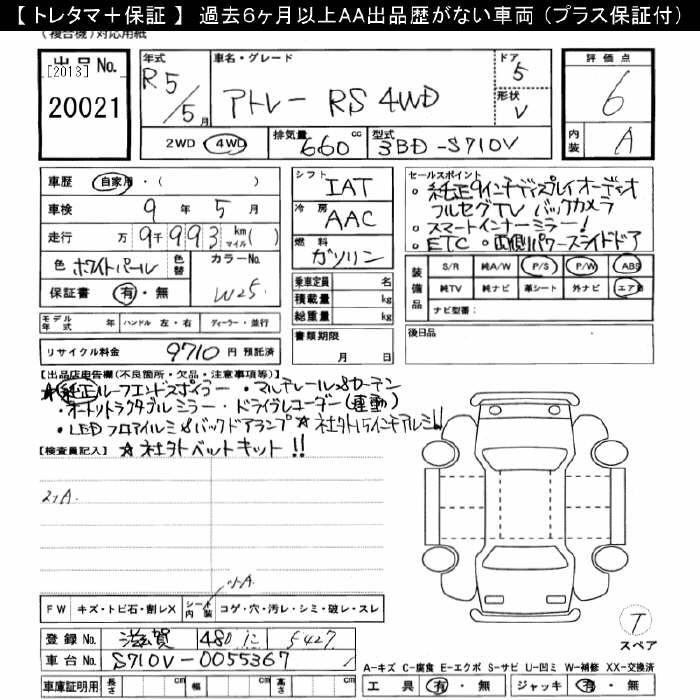 【 トレタマ＋保証 】 過去６ヶ月以上ＡＡ出品歴がない車両（プラス保証付）
(複合機)対応用紙
出品No. [2013] 20021
年式 R5/5月
車名・グレード アトレー RS 4WD
ドア 5
形状 V
評価点 6
内装 A
2WD 4WD 排気量 660 cc 型式 3BD-S710V
車歴 自家用・( )
車検 9年 5月
走行 万 9千 993 km マイル( )
色 ホワイトパール 色替 カラーNo. W25
保証書 有・無
シフト IAT
冷房 AAC
燃料 ガソリン
乗車定員 名
積載量 kg
総重量 kg
書類期限 月 日
セールスポイント
・純正9インチディスプレイオーディオ
フルセグTV バックカメラ
・スマートインナーミラー!
・ETC ・両側パワースライドドア
装備品 S/R 純A/W P/S P/W ABS
純TV 純ナビ 革シート 外ナビ エアB
ナビ型番:
後日品
モデル年式 年 ハンドル 左・右 ディーラー・並行
リサイクル料金 9710 円 預託済
【出品店申告欄(不良箇所・欠品・注意事項等)】
★純正ルーフエンドスポイラー ・マルチレール&カーテン
・オートリトラクタブルミラー ・ドライブレコーダー(連動)
・LEDフロアイルミ&バックドアランプ ☆社外15インチアルミ!!
【検査員記入】 ☆社外ベットキット!!
FW キズ・トビ石・割レX シート内装 コゲ・穴・汚レ・シミ・破レ・スレ
登録No. 滋賀 480 に 5427
車台No. S710V-0055367
車庫証明用 長さ cm 幅 cm 高さ cm
T
スペア
A-キズ C-腐食 E-エクボ S-サビ U-凹ミ W-補修 XX-交換済
工具 有・無 ジャッキ 有・無